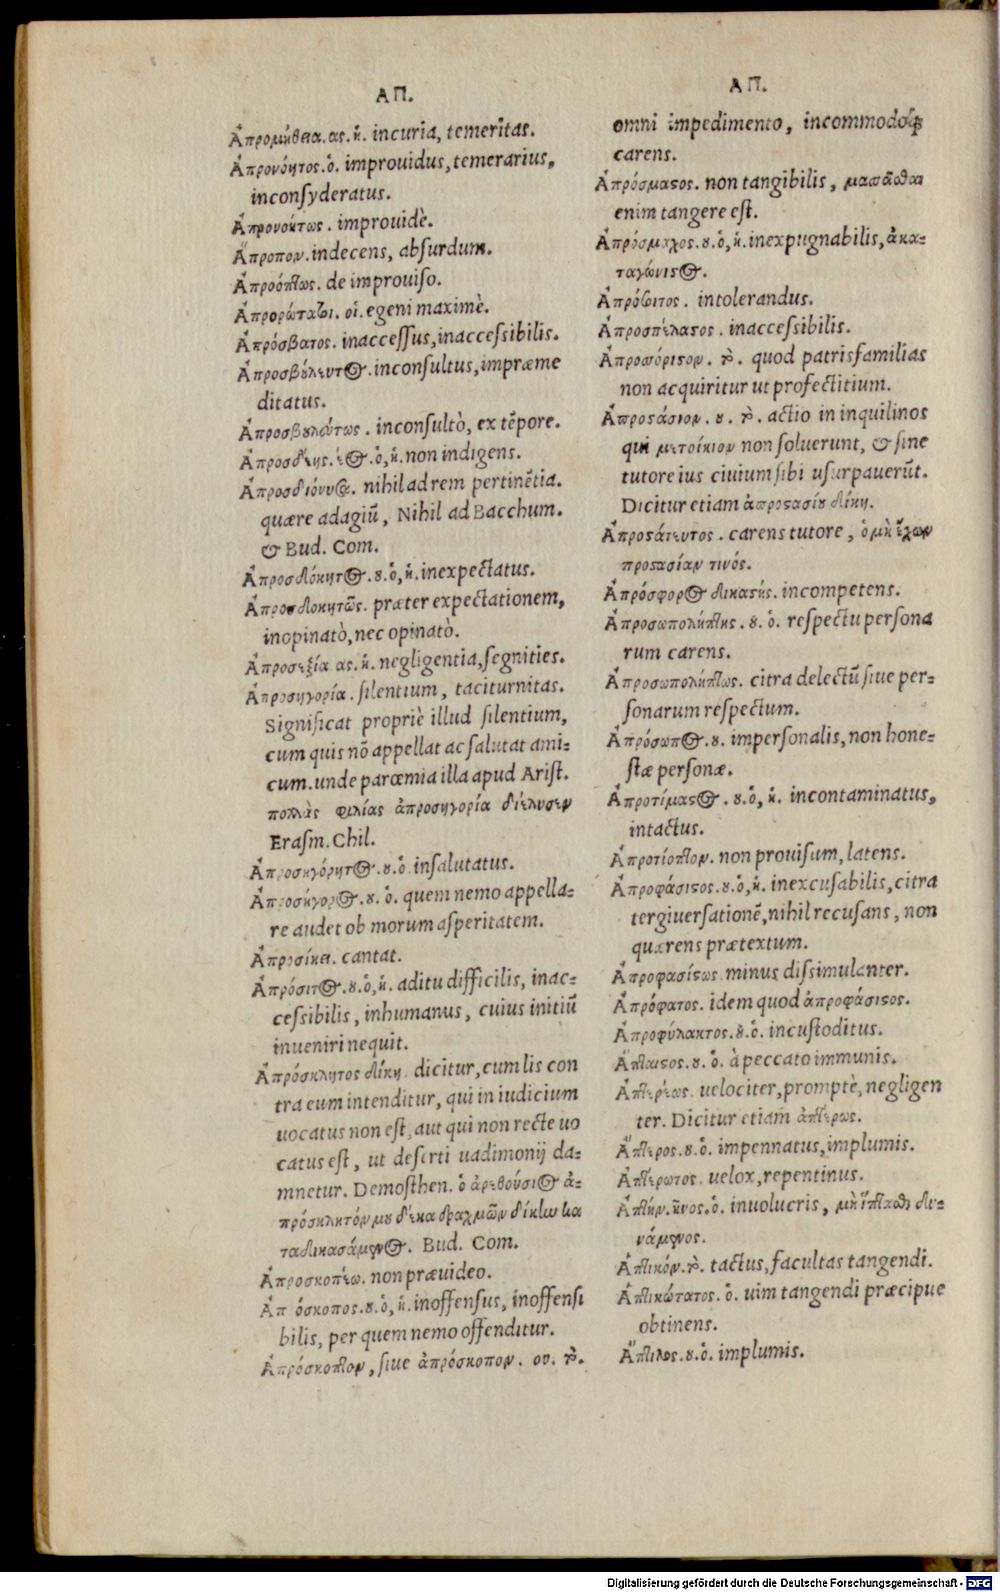 ΑΠ.
Ἀπρομήθεια. ας. ἡ. incuria, temeritas.
Ἀπρονόητος. ὁ. improuidus, temerarius,
inconsyderatus.
Ἀπρονοήτως. improuidè.
Ἄπροπον. indecens, absurdum.
Ἀπροόπτως. de improuiso.
Ἀπορώτατοι. οἱ. egeni maximè.
Ἀπρόσβατος. inaccessus, inaccessibilis.
Ἀπροσβούλευτος. inconsultus, impræme
ditatus.
Ἀπροσβουλεύτως. inconsultò, ex tẽpore.
Ἀπροσδεής. έος. ὁ, ἡ. non indigens.
Ἀπροσδιόνυσα. nihil ad rem pertinẽtia.
quære adagiũ, Nihil ad Bacchum.
& Bud. Com.
Ἀπροσδόκητος. ου. ὁ, ἡ. inexpectatus.
Ἀπροσδοκητῶς. præter expectationem,
inopinatò, nec opinatò.
Ἀπροσεξία. ας. ἡ. negligentia, segnities.
Ἀπροσηγορία. silentium, taciturnitas.
Significat propriè illud silentium,
cum quis nõ appellat ac salutat ami-
cum. unde parœmia illa apud Arist.
πολλὰς φιλίας ἀπροσηγορία διέλυσεν
Erasm. Chil.
Ἀπροσηγόρητος. ου. ὁ. insalutatus.
Ἀπροσήγορος. ου. ὁ. quem nemo appella-
re audet ob morum asperitatem.
Ἀπροσίκει. cantat.
Ἀπρόσιτος. ου. ὁ, ἡ. aditu difficilis, inac-
cessibilis, inhumanus, cuius initiũ
inueniri nequit.
Ἀπρόσκλητος δίκη. dicitur, cum lis con
tra eum intenditur, qui in iudicium
uocatus non est, aut qui non recte uo
catus est, ut deserti uadimonij da-
mnetur. Demosthen. ὁ ἀρεθούσιος ἀ-
πρόσκλητόν μου δέκα δραχμῶν δίκην κα
ταδικασάμενος. Bud. Com.
Ἀπροσκοπέω. non præuideo.
Ἀπρόσκοπος. ου. ὁ, ἡ. inoffensus, inoffensi
bilis, per quem nemo offenditur.
Ἀπρόσκοπτον, siue ἀπρόσκοπον. ου. τὸ.
ΑΠ.
omni impedimento, incommodoq́;
carens.
Ἀπρόσμαστος. non tangibilis, μασᾶσθαι
enim tangere est.
Ἀπρόσμαχος. ου. ὁ, ἡ. inexpugnabilis, ἀκα-
ταγώνιστος.
Ἀπρόσιτος. intolerandus.
Ἀπροσπέλαστος. inaccessibilis.
Ἀπροσόριστον. τὸ. quod patrisfamilias
non acquiritur ut profectitium.
Ἀπροστάσιον. ου. τὸ. actio in inquilinos
qui μετοίκιον non soluerunt, & sine
tutore ius ciuium sibi usurpauerũt.
Dicitur etiam ἀπροστασίου δίκη.
Ἀπροστάτευτος. carens tutore, ὁ μὴ ἔχων
προστασίαν τινός.
Ἀπρόσφορος δικαστής. incompetens.
Ἀπροσωπολήπτης. ου. ὁ. respectu persona
rum carens.
Ἀπροσωπολήπτως. citra delectũ siue per-
sonarum respectum.
Ἀπρόσωπος. ου. impersonalis, non hone-
stæ personæ.
Ἀπροτίμαστος. ου. ὁ, ἡ. incontaminatus,
intactus.
Ἀπροτίοπτον. non prouisum, latens.
Ἀπροφάσιστος. ου. ὁ, ἡ. inexcusabilis, citra
tergiuersationẽ, nihil recusans, non
quærens prætextum.
Ἀπροφασίστως. minus dissimulanter.
Ἀπρόφατος. idem quod ἀπροφάσιστος.
Ἀπροφύλακτος. ου. ὁ. incustoditus.
Ἄπταιστος. ου. ὁ. à peccato immunis.
Ἀπτερέως. uelociter, promptè, negligen
ter. Dicitur etiam ἀπτέρως.
Ἄπτερος. ου. ὁ. impennatus, implumis.
Ἀπτέρωτος. uelox, repentinus.
Ἀπτήν. ῆνος. ὁ. inuolucris, μὴ ἵπτασθαι δυ-
νάμενος.
Ἁπτικόν. τὸ. tactus, facultas tangendi.
Ἁπτικώτατος. ὁ. uim tangendi præcipue
obtinens.
Ἄπτιλος. ου. ὁ. implumis.
Digitalisierung gefördert durch die Deutsche Forschungsgemeinschaft - DFG